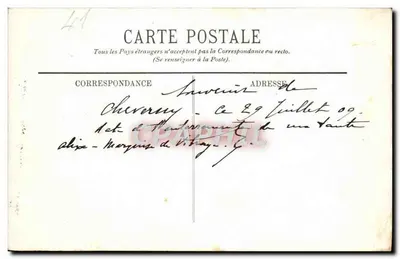 41
CARTE POSTALE
Tous les Pays étrangers n'acceptent pas la Correspondance au recto.
(Se renseigner à la Poste).
CORRESPONDANCE
ADRESSE
Souvenir de
Cheverny - ce 29 Juillet 09.
date de l'enterrement de ma tante
alix - Marquise de Vibraye.